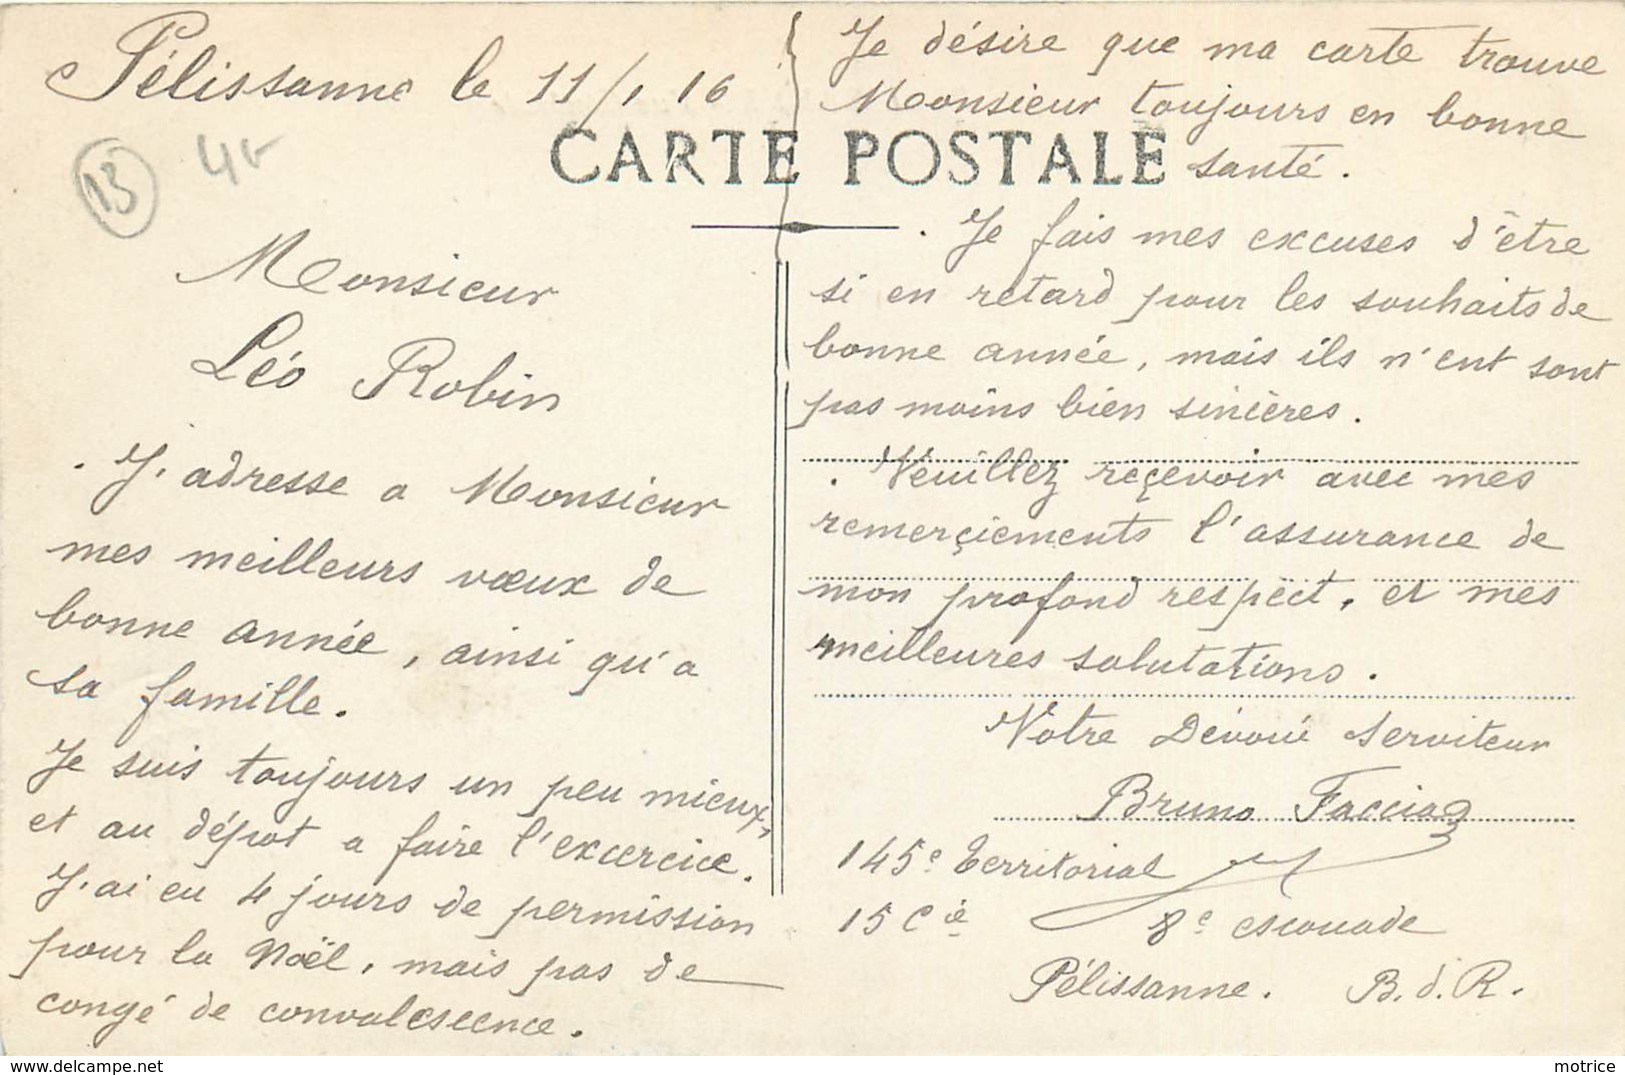 Pélissanne le 11/1 16
13
CARTE POSTALE
Monsieur
Léo Robin
. J. adresse a Monsieur
mes meilleurs vœux de
bonne année, ainsi qu'a
sa famille.
Je suis toujours un peu mieux,
et au dépot a faire l'excercice.
J. ai eu 4 jours de permission
pour la Noël, mais pas de
congé de convalescence.
Je désire que ma carte trouve
Monsieur toujours en bonne
santé.
. Je fais mes excuses d'être
si en retard pour les souhaits de
bonne année, mais ils n'ent sont
pas moins bien sincères.
. Veuillez reçevoir avec mes
remerçiements l'assurance de
mon profond respect, et mes
meilleures salutations.
Votre Dévoué serviteur
Bruno
145e Territorial
15 Cie 8e escouade
Pélissanne. B.d.R.
motrice